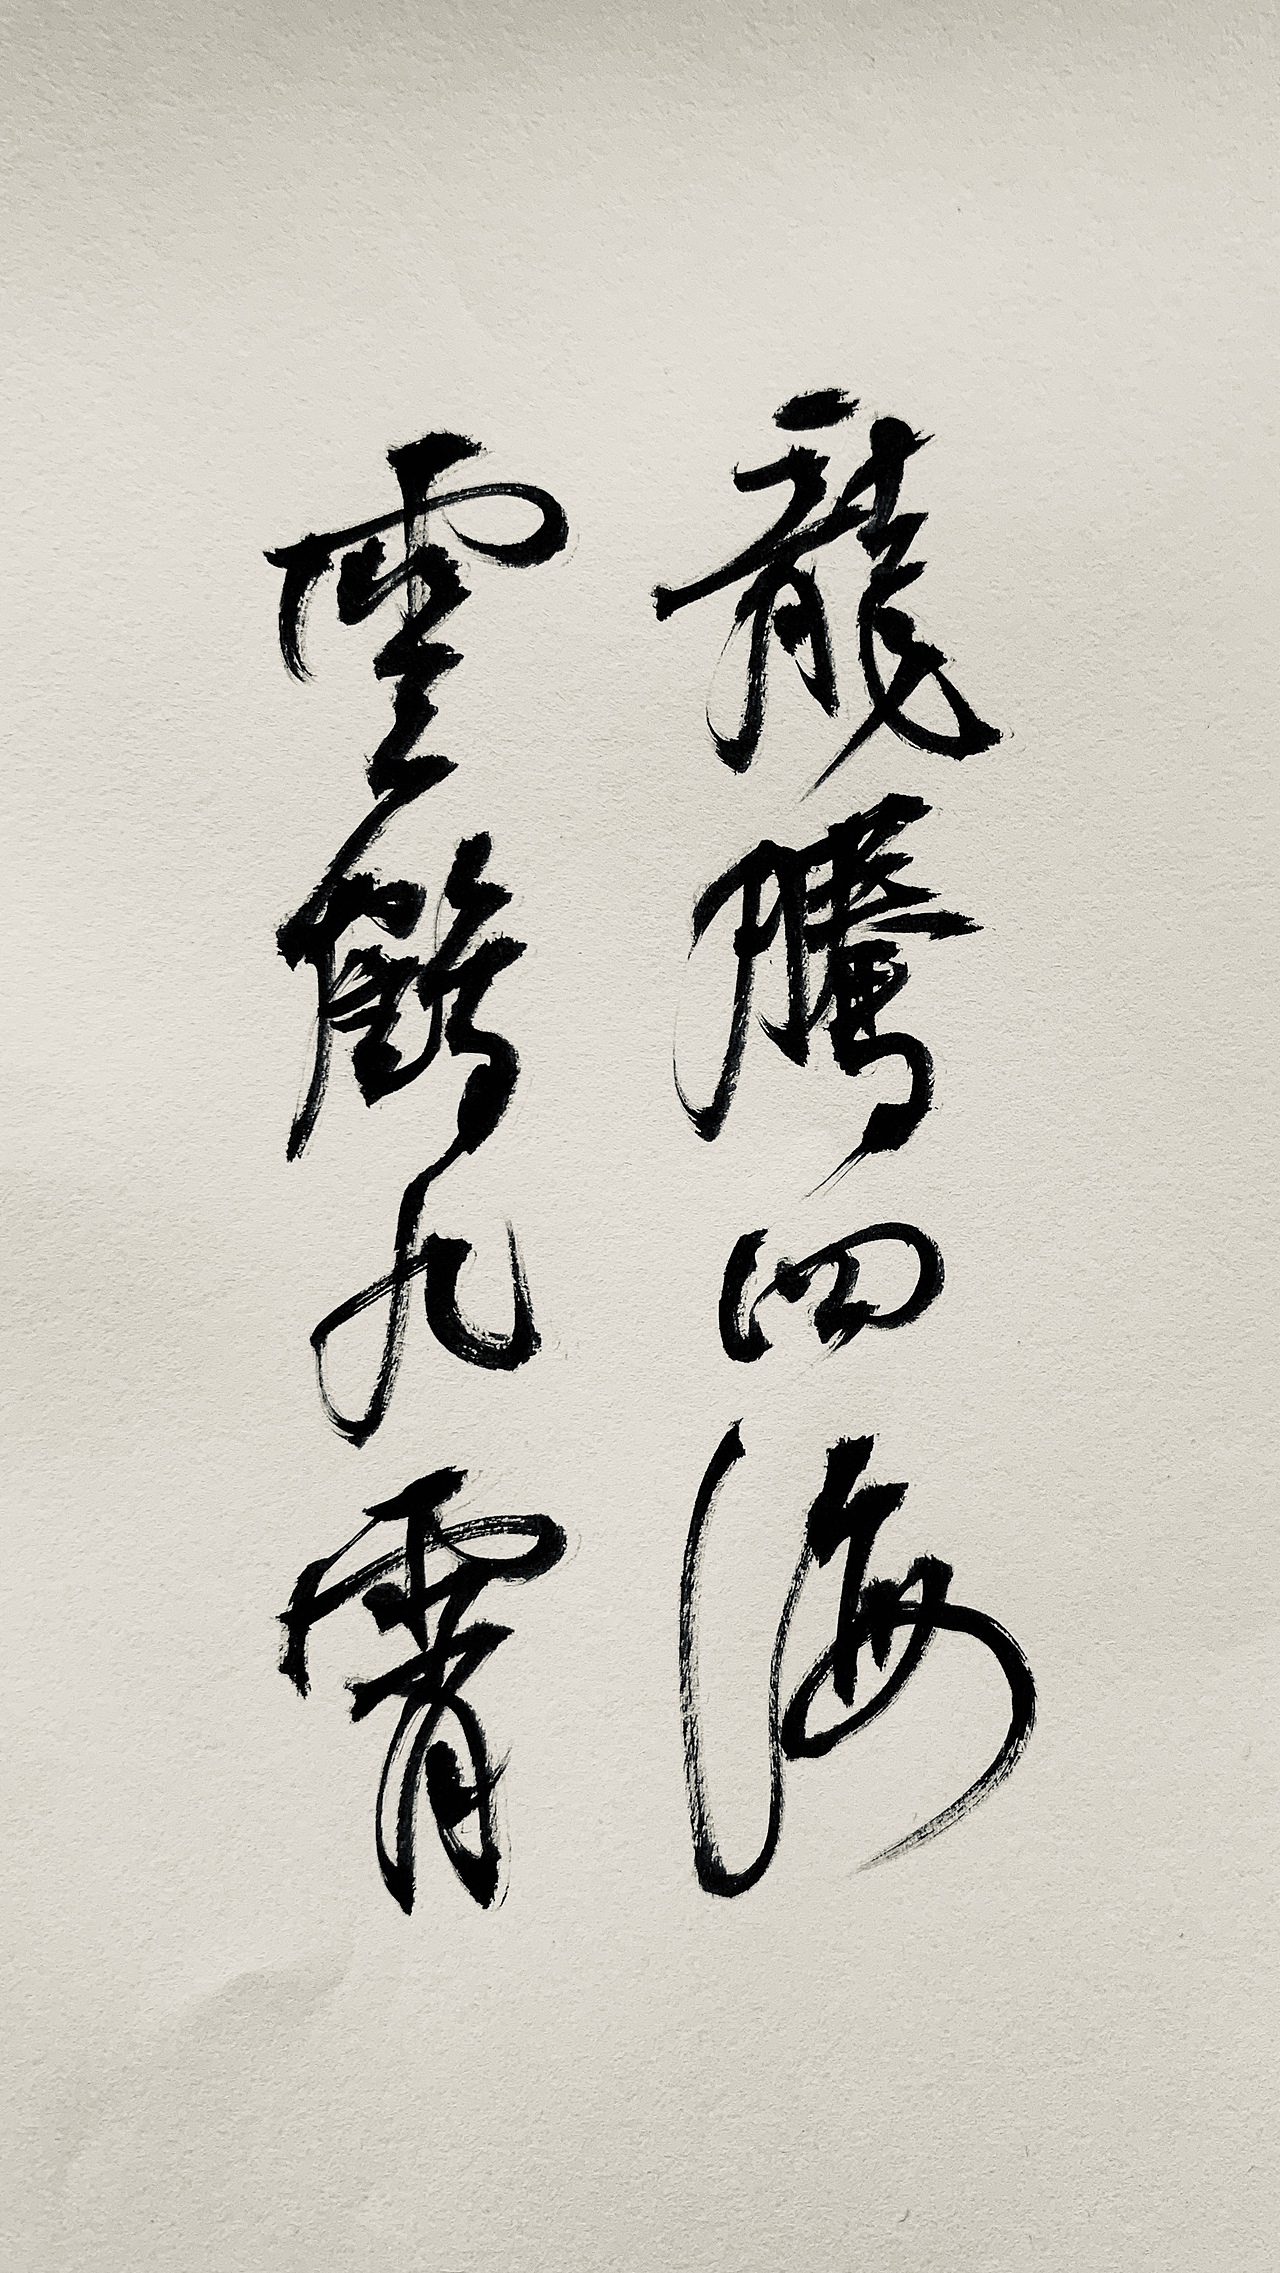 龍騰四海
雲鶴九霄